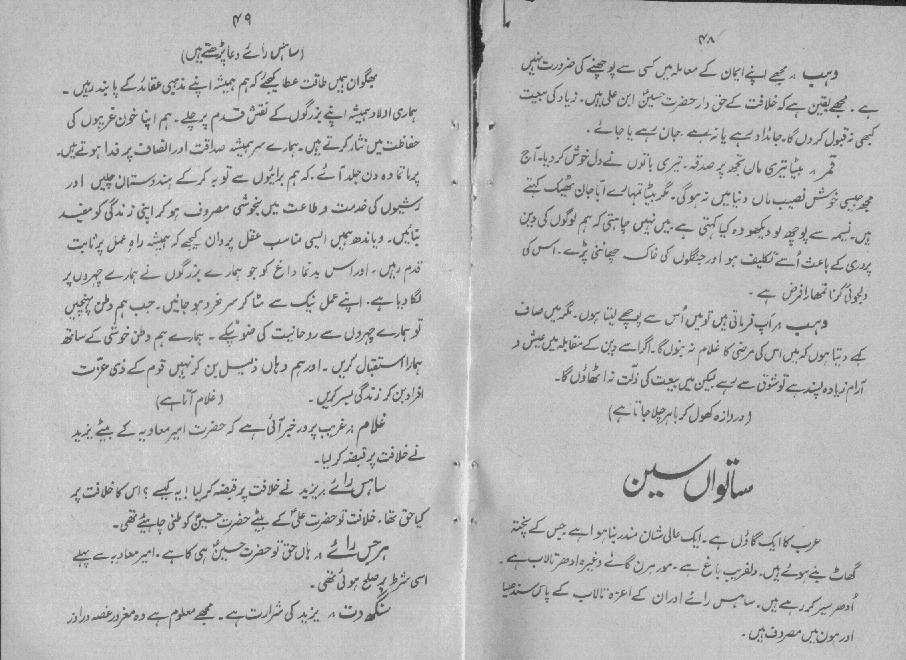 ۴۸
وہب ۔ مجھے اپنے ایمان کے معاملہ میں کسی سے پوچھنے کی ضرورت نہیں
ہے ۔ مجھے یقین ہے کہ خلافت کے حق دار حضرت حسینؑ ابن علی ہیں۔ زیاد کی بیعت
کبھی نہ قبول کروں گا۔ جائداد رہے یا نہ رہے ، جان رہے یا جائے ۔
قمر ۔ بیٹا تیری ماں تجھ پر صدقہ۔ تیری باتوں نے دل خوش کر دیا۔ آج
مجھ جیسی خوش نصیب ماں دنیا میں نہ ہوگی۔ مگر بیٹا تمہارے ابا جان ٹھیک کہتے
ہیں۔ نسیمہ سے پوچھ لو دیکھو وہ کیا کہتی ہے۔ میں نہیں چاہتی کہ ہم لوگوں کی دین
پروری کے باعث اُسے تکلیف ہو اور جنگلوں کی خاک چھاننی پڑے۔ اس کی
دلجوئی کرنا تمھارا فرض ہے ۔
وہب ۔ آپ فرماتی ہیں تو میں اُس سے پوچھے لیتا ہوں۔ مگر میں صاف
کہے دیتا ہوں کہ میں اس کی مرضی کا غلام نہ بنوں گا۔ اگر اسے دین کے مقابلہ میں عیش و
آرام زیادہ پسند ہے تو شوق سے رہے لیکن میں بیعت کی ذلت نہ اٹھاؤں گا۔
(دروازہ کھول کر باہر چلا جاتا ہے)
ساتواں سین
عرب کا ایک گاؤں ہے۔ ایک عالی شان مندر بنا ہوا ہے جس کے پختہ
گھاٹ بنے ہوئے ہیں۔ دلفریب باغ ہے۔ مور ہرن گائے وغیرہ ادھر تالاب ہے ۔
اُدھر سیر کر رہے ہیں۔ ساہس رائے اور ان کے اعزہ تالاب کے پاس سندھیا
اور ہون میں مصروف ہیں ۔
۴۹
(ساہس رائے دعا پڑھتے ہیں)
بھگوان ہمیں طاقت عطا کیجئے کہ ہم ہمیشہ اپنے مذہبی عقائد کے پابند رہیں ۔
ہماری اولاد ہمیشہ اپنے بزرگوں کے نقش قدم پر چلے۔ ہم اپنا خون غریبوں کی
حفاظت میں نثار کرتے ہیں۔ ہمارے سر ہمیشہ صداقت اور انصاف پر فدا ہوتے ہیں۔
پرماتما وہ دن جلد آئے ، کہ ہم برائیوں سے توبہ کر کے ہندوستان چلیں اور
رشیوں کی خدمت و طاعت میں بخوشی مصروف ہو کر اپنی زندگی کو مفید
بنائیں۔ ہمیں ایسی مناسب عقل پروان کیجے کہ ہمیشہ راہِ عمل پر ثابت
قدم رہیں ۔ اور اس بدنما داغ کو جو ہمارے بزرگوں نے ہمارے چہروں پر
لگا دیا ہے۔ اپنے عمل نیک سے مٹا کر سرخرو ہو جائیں۔ جب ہم وطن پہنچیں
تو ہمارے چہروں سے روحانیت کی ضو ٹپکے ۔ ہمارے ہم وطن خوشی کے ساتھ
ہمارا استقبال کریں ۔ اور ہم وہاں ذلیل بن کر نہیں قوم کے ذی عزت
افراد بن کر زندگی بسر کریں ۔ (غلام آتا ہے)
غلام ۔ غریب پرور خبر آئی ہے کہ حضرت امیر معاویہ کے بیٹے یزید
نے خلافت پر قبضہ کر لیا۔
ساہس رائے ۔ یزید نے خلافت پر قبضہ کر لیا! یہ کیسے ؟ اس کا خلافت پر
کیا حق تھا۔ خلافت تو حضرت علیؑ کے بیٹے حضرت حسینؑ کو ملنی چاہئیے تھی۔
ہرجس رائے ۔ ہاں حق تو حضرت حسینؑ ہی کا ہے۔ امیر معاویہ سے پہلے
اسی شرط پر صلح ہوئی تھی۔
سنگھ دت ۔ یزید کی شرارت ہے۔ مجھے معلوم ہے وہ مغرور غصہ ور اور